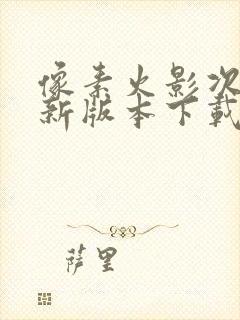 像素火影次
新版本下载
萨里